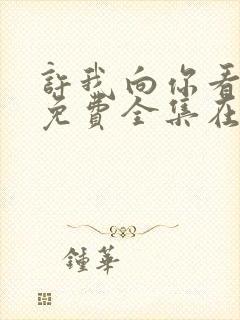 許我向你看
免費全集在
鍾華